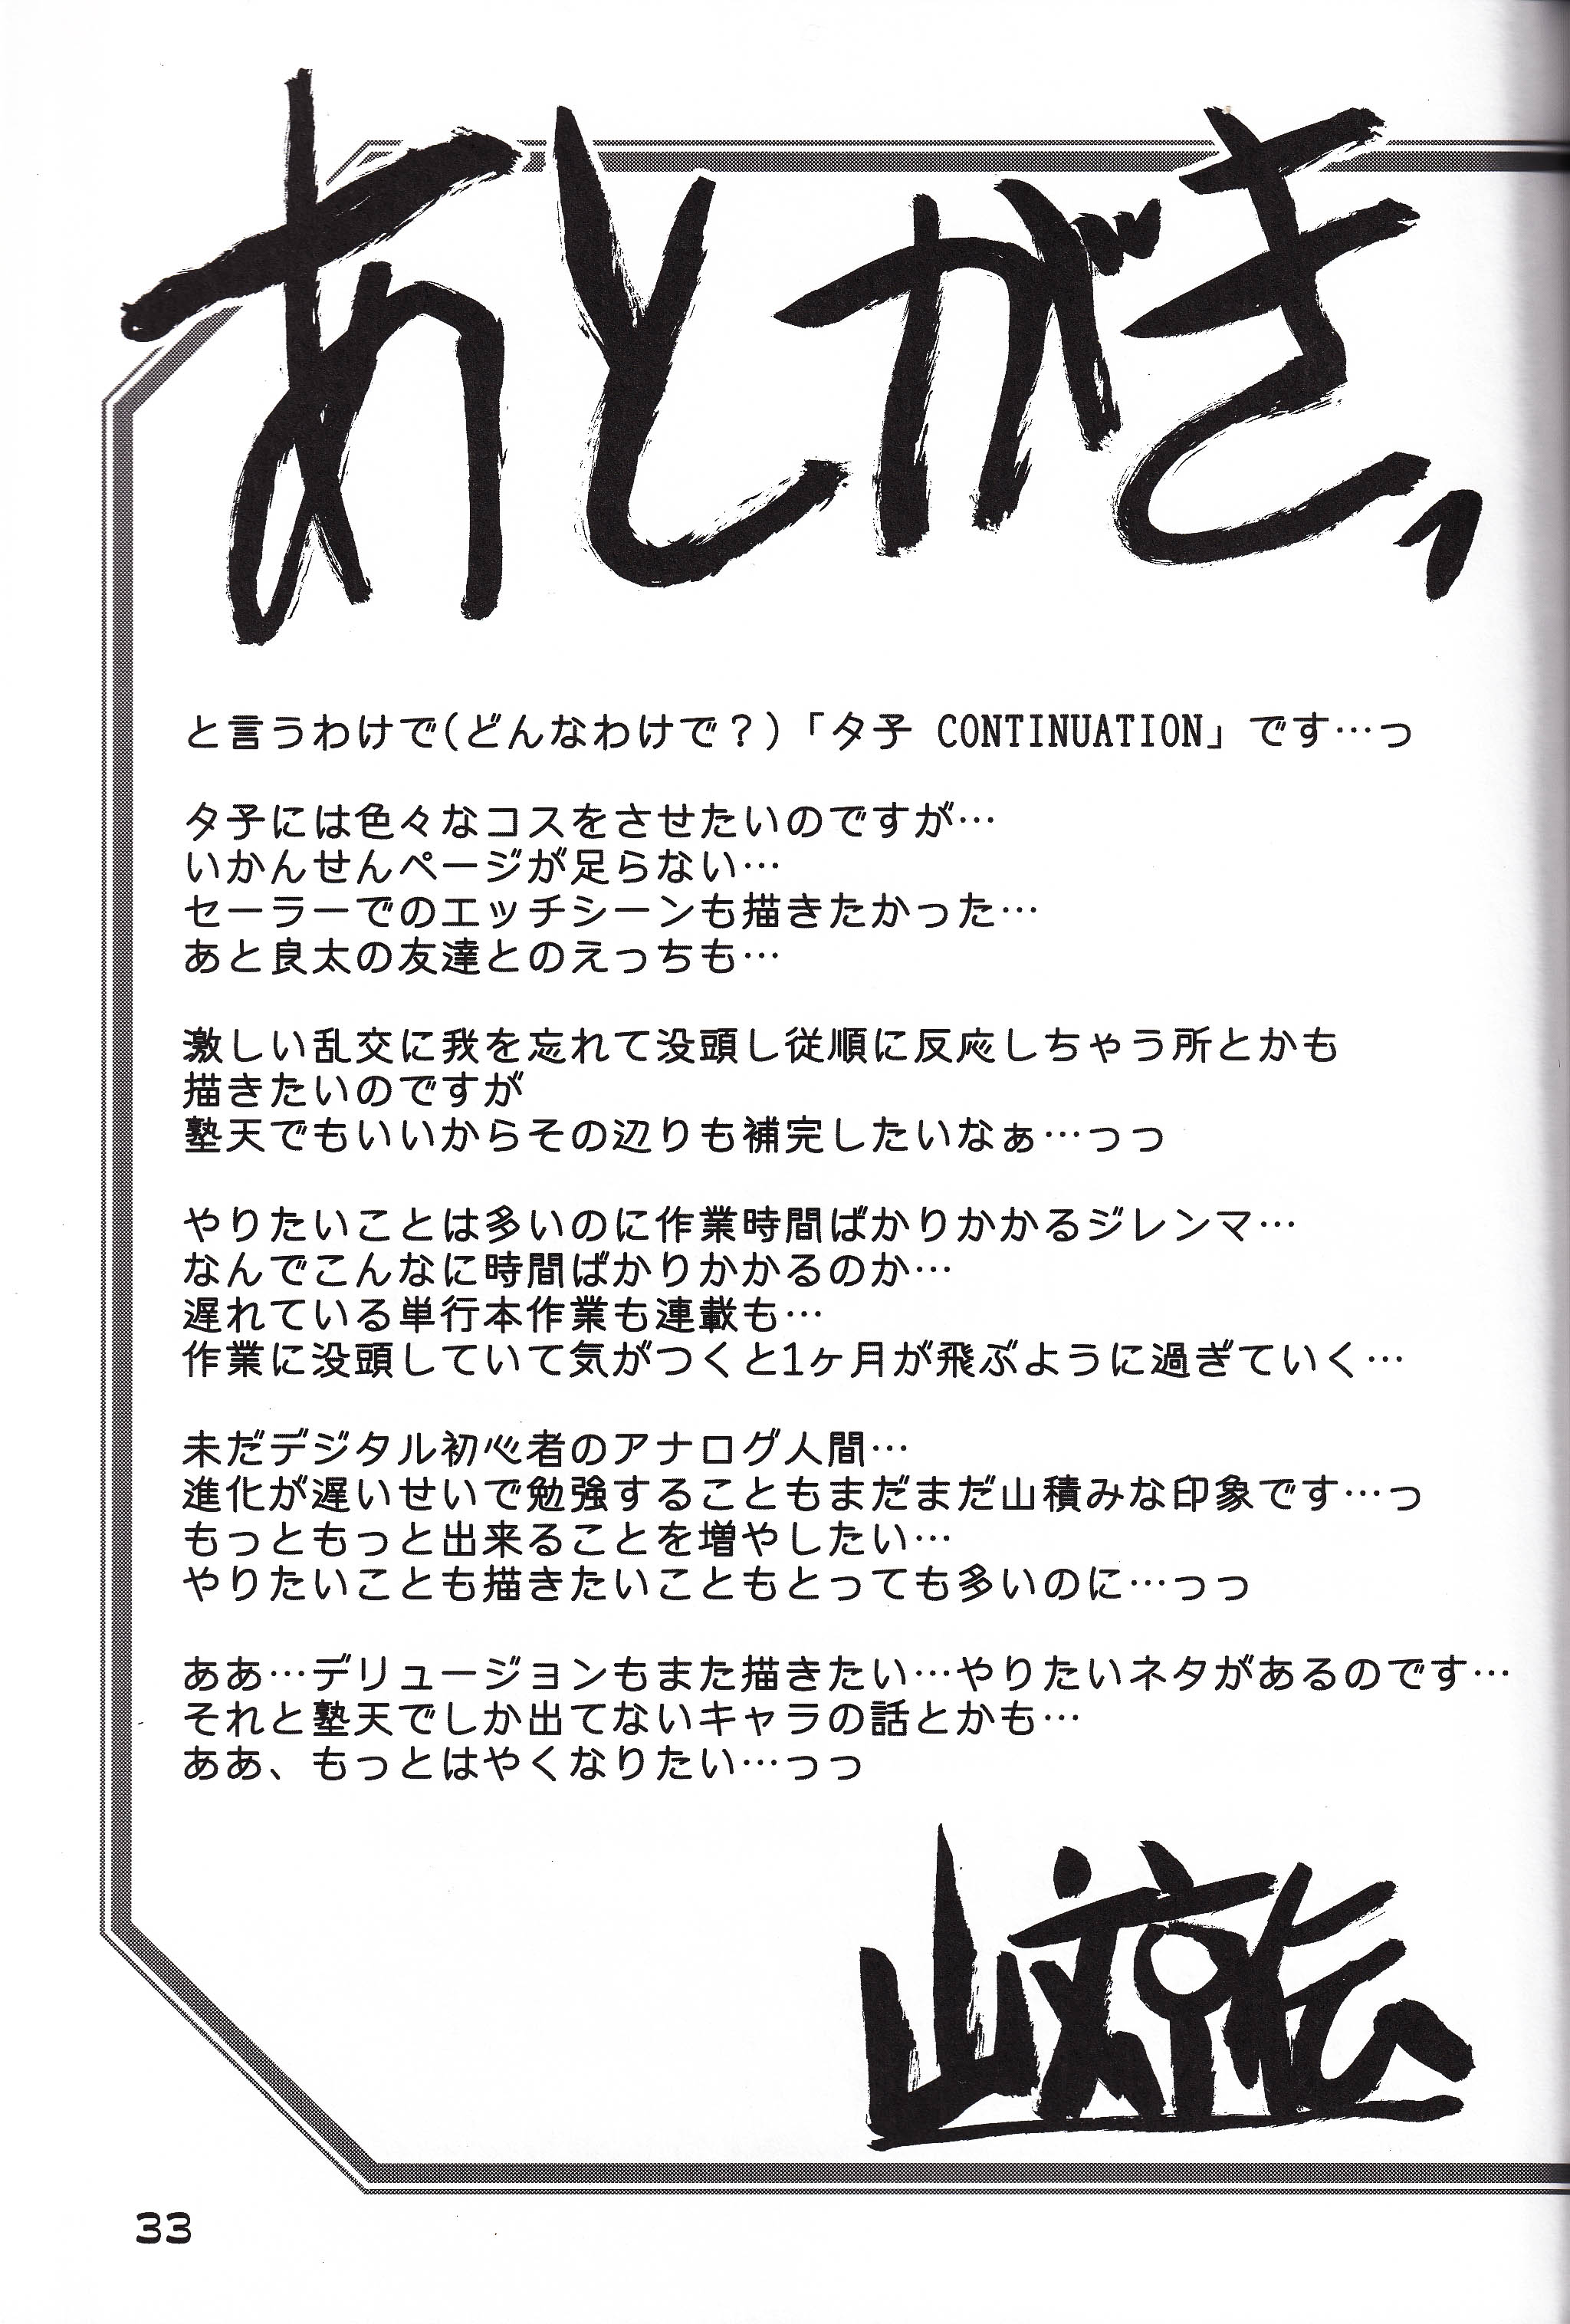 あとがき、
と言うわけで(どんなわけで？)「夕子 CONTINUATION」です…っ
夕子には色々なコスをさせたいのですが…
いかんせんページが足らない…
セーラーでのエッチシーンも描きたかった…
あと良太の友達とのえっちも…
激しい乱交に我を忘れて没頭し従順に反応しちゃう所とかも
描きたいのですが
塾天でもいいからその辺りも補完したいなぁ…っっ
やりたいことは多いのに作業時間ばかりかかるジレンマ…
なんでこんなに時間ばかりかかるのか…
遅れている単行本作業も連載も…
作業に没頭していて気がつくと1ヶ月が飛ぶように過ぎていく…
未だデジタル初心者のアナログ人間…
進化が遅いせいで勉強することもまだまだ山積みな印象です…っ
もっともっと出来ることを増やしたい…
やりたいことも描きたいこともとっても多いのに…っっ
ああ…デリュージョンもまた描きたい…やりたいネタがあるのです…
それと塾天でしか出てないキャラの話とかも…
ああ、もっとはやくなりたい…っっ
山文京伝
33